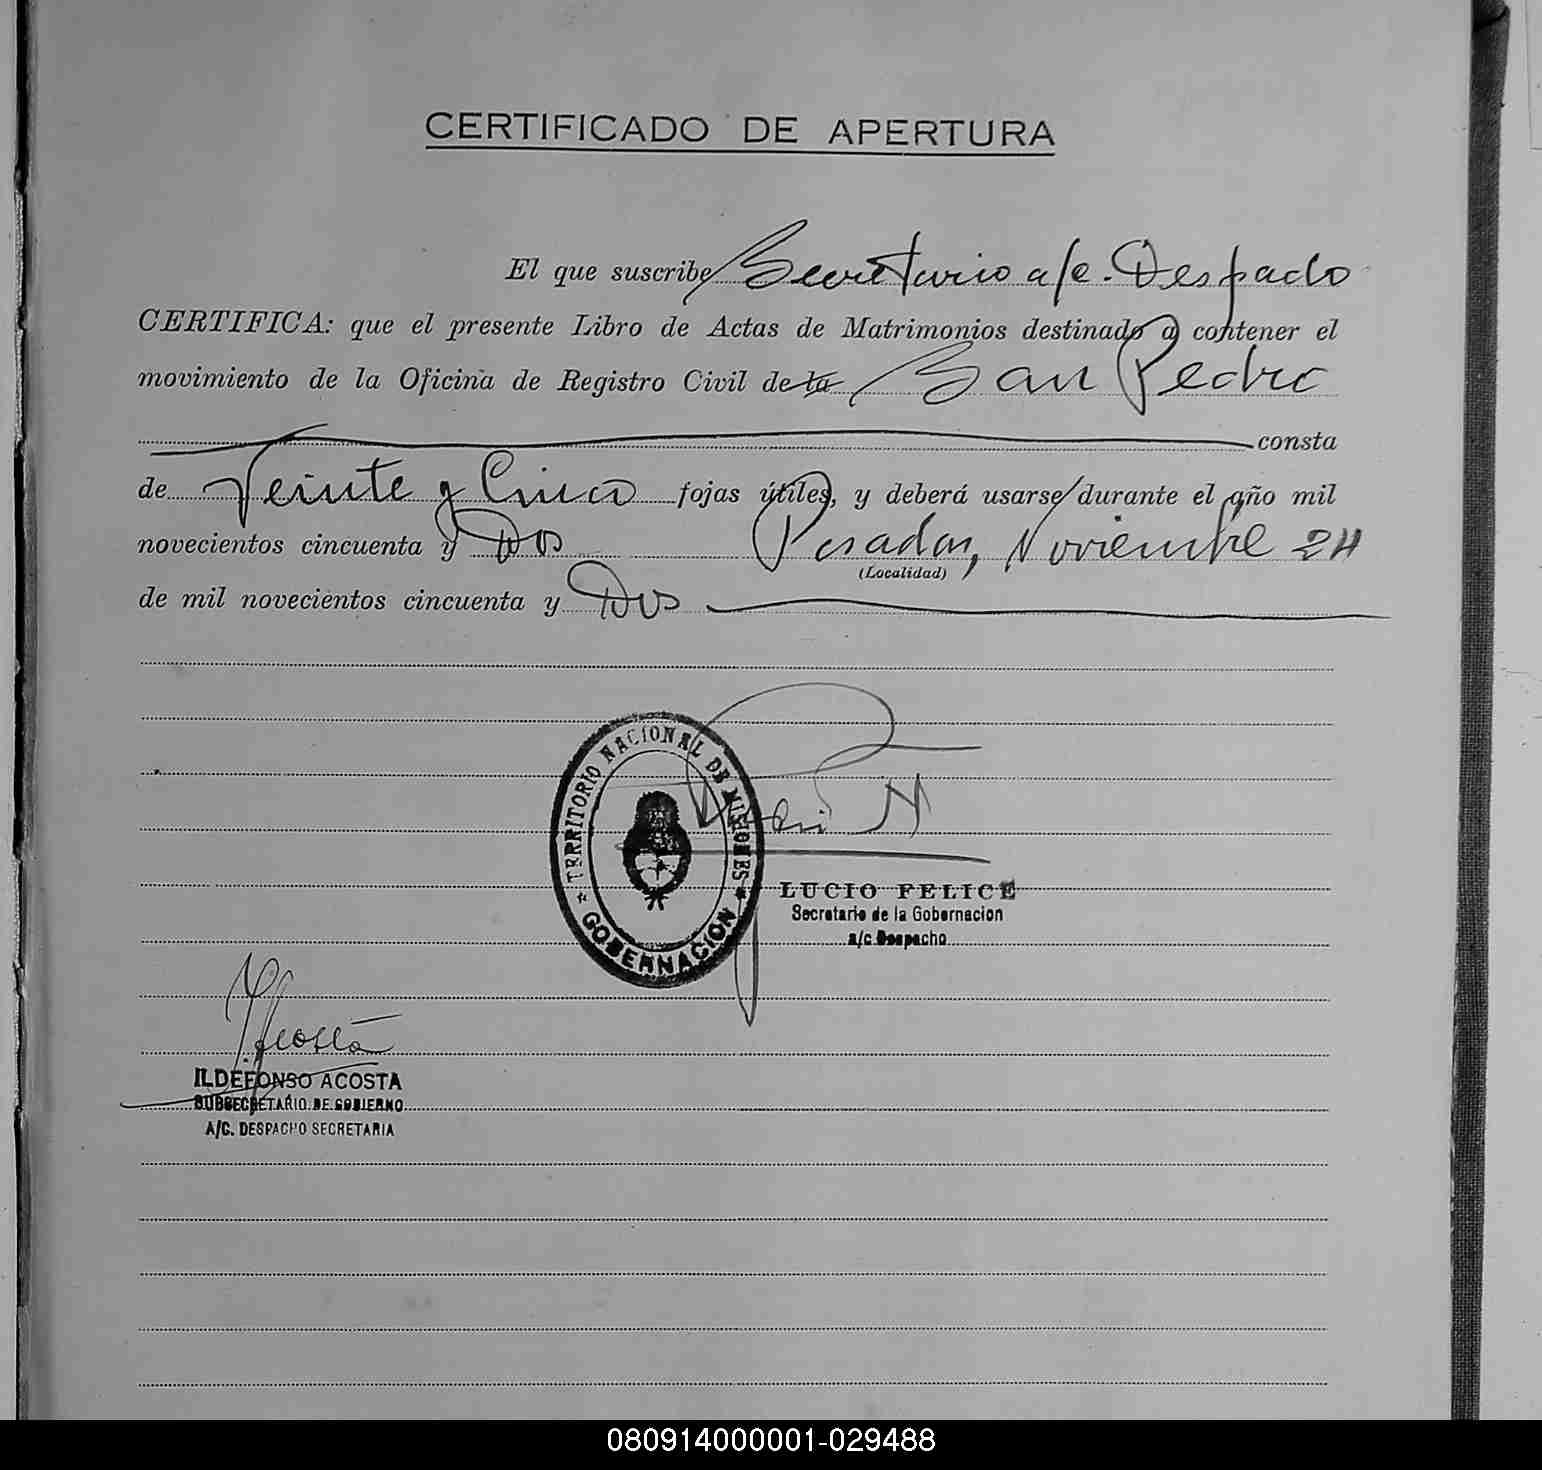 CERTIFICADO DE APERTURA
El que suscribe Secretario a/c. Despacho
CERTIFICA: que el presente Libro de Actas de Matrimonios destinado a contener el
movimiento de la Oficina de Registro Civil de la San Pedro
consta
de Veinte y Cinco fojas útiles, y deberá usarse durante el año mil
novecientos cincuenta y Dos Posadas, Noviembre 24
(Localidad)
de mil novecientos cincuenta y Dos
TERRITORIO NACIONAL DE MISIONES
GOBERNACION
LUCIO FELICE
Secretario de la Gobernacion
a/c Despacho
Acosta
ILDEFONSO ACOSTA
SUBSECRETARIO DE GOBIERNO
A/C. DESPACHO SECRETARIA
080914000001-029488